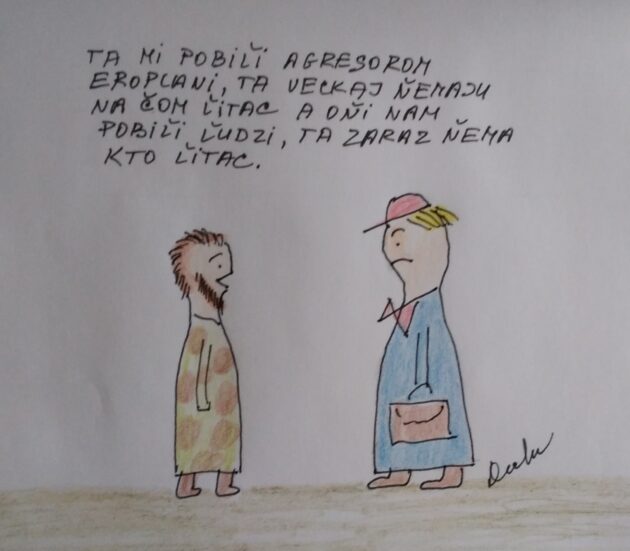 TA MI POBIĽI AGRESOROM
EROPLANI, TA VECKAJ ŇEMAJU
NA ČOM ĽITAC A OŇI NAM
POBIĽI ĽUDZI, TA ZARAZ ŇEMA
KTO ĽITAC.